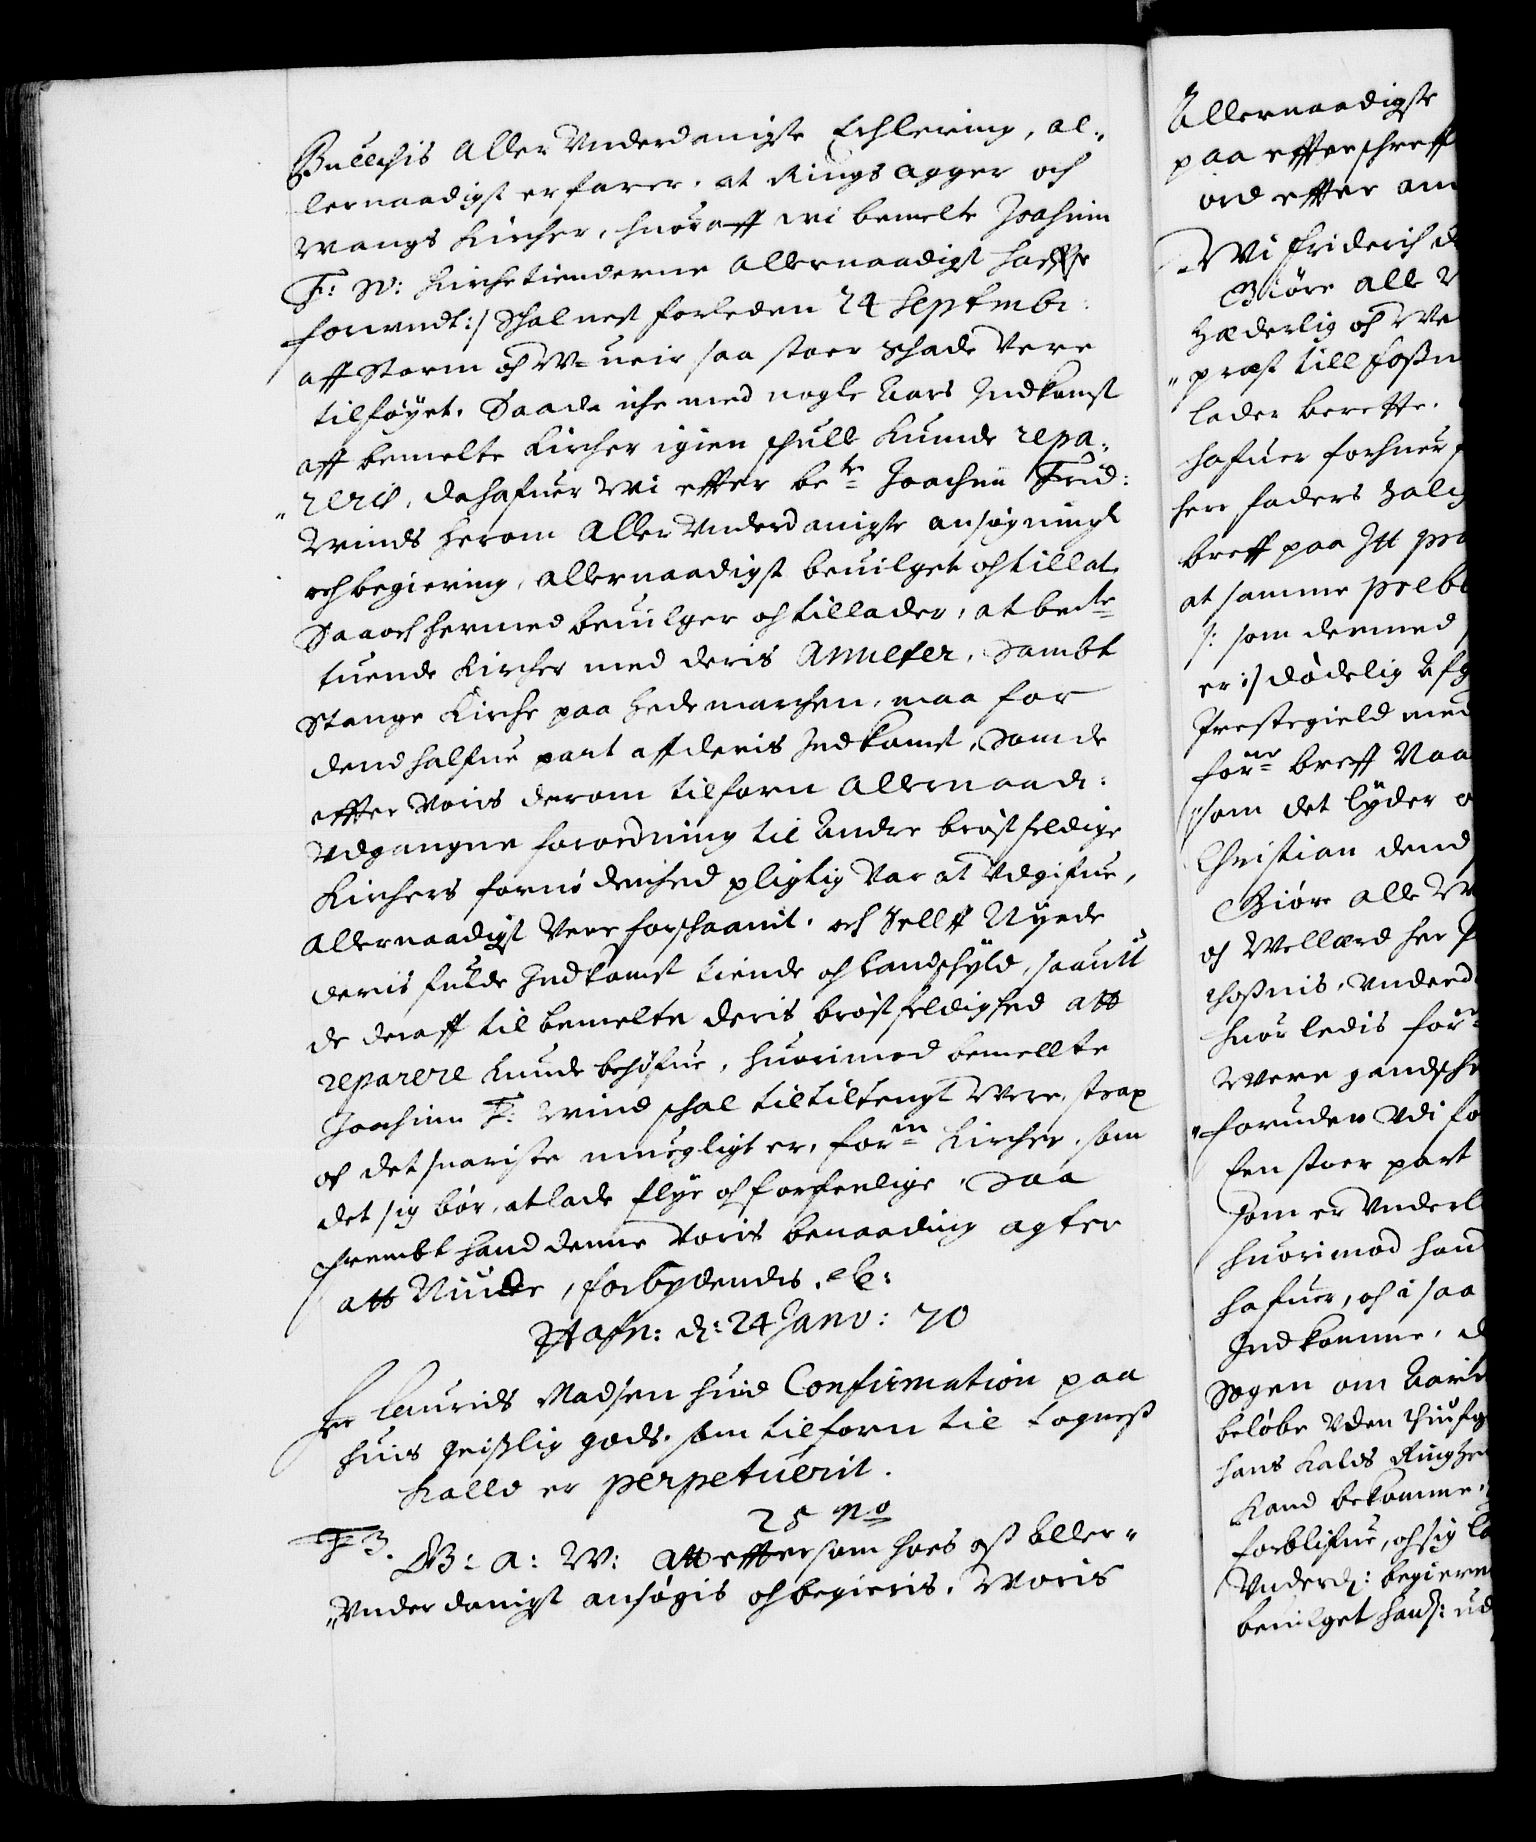 Bullchis Aller Underdanigste Erklering, al-
lernaadigst erfarer, at Rings agger och
Wangs Kircher, huoraff wi bemelte Joachim
F: W: Kirchetienderne Allernaadigst haffr
forundt:/ Schal nest forleden 24 Septembr:
aff Storm och W=ueir saa stoer Schade Vere
tilføyet. Saa de iche med nogle Aars Indkomst
aff bemelte Kircher igien schulle Kunde repa-
reris, da hafuer Wi effter be^te Joachim Frid:
Winds herom Aller Underdanigste ansøgning
och begiering, allernaadigst beuilget och tillat
Saa och hermed beuilger och tillader, at be^te
tuende Kircher med deris Annexer, sambt
Stange Kirche paa Hedemarchen, maa for
dend halfue part aff deris Indkomst, som de
effter Voris derom tilforn Allernaad:
Udgangne forordning til Andre brøstfeldige
Kirchers fornødenhed pligtig Var at Udgifue,
Allernaadigst Vere forschaanit, och Sellff Nyde
deris fulde Indkomst tiende och landschyld, saauit
de deraff til bemelte deris brøstfeldighed att
reparere Kunde behøfue, huorimod bemellte
Joachim F: Wind schal tiltiltengt Were, strax
och det snariste muegligt er, for^ne Kircher, som
det sig bør, at lade flye och forferdige, saa
frembt hand denne Voris benaading agter
att Niude, forbydendis. etc:
Hafn: d: 24 Janv: 70
Hr Laurids Madsen huid Confirmation paa
huis geistlig gods, som tilforn til Fognest
Kalld er perpetuerit.
25 No
F 3. G: A: W: att effter som hoes oss Aller-
Underdanigst ansøgis och begieris, Woris
Allernaadigste
paa effterschreff
ord effter an
Wi Friderich d
Giøre alle V
Hæderlig och We
præst till Fossn
lader berette.
hafuer forhuer
herr faders Salig
breff paa Itt pr
at samme preb
/: som dermed
er:/ dødelig Afg
Prestegield med
for^ne breff Naa
som det lyder o
Christian dend
Giøre alle W
och Wellærd her P
Fossnis, Underd
huorledis for^n
Were gandsche
foruden Udi fo
Een stoer part
som er Underl
huorimod han
hafuer, och i saa
Indkomme, d
Sogen om Aari
beløbe Uden
hans Kalds Ringhe
Kand bekomme,
forblifue, och sig la
Underd: begieren
beuilget hafu: ud